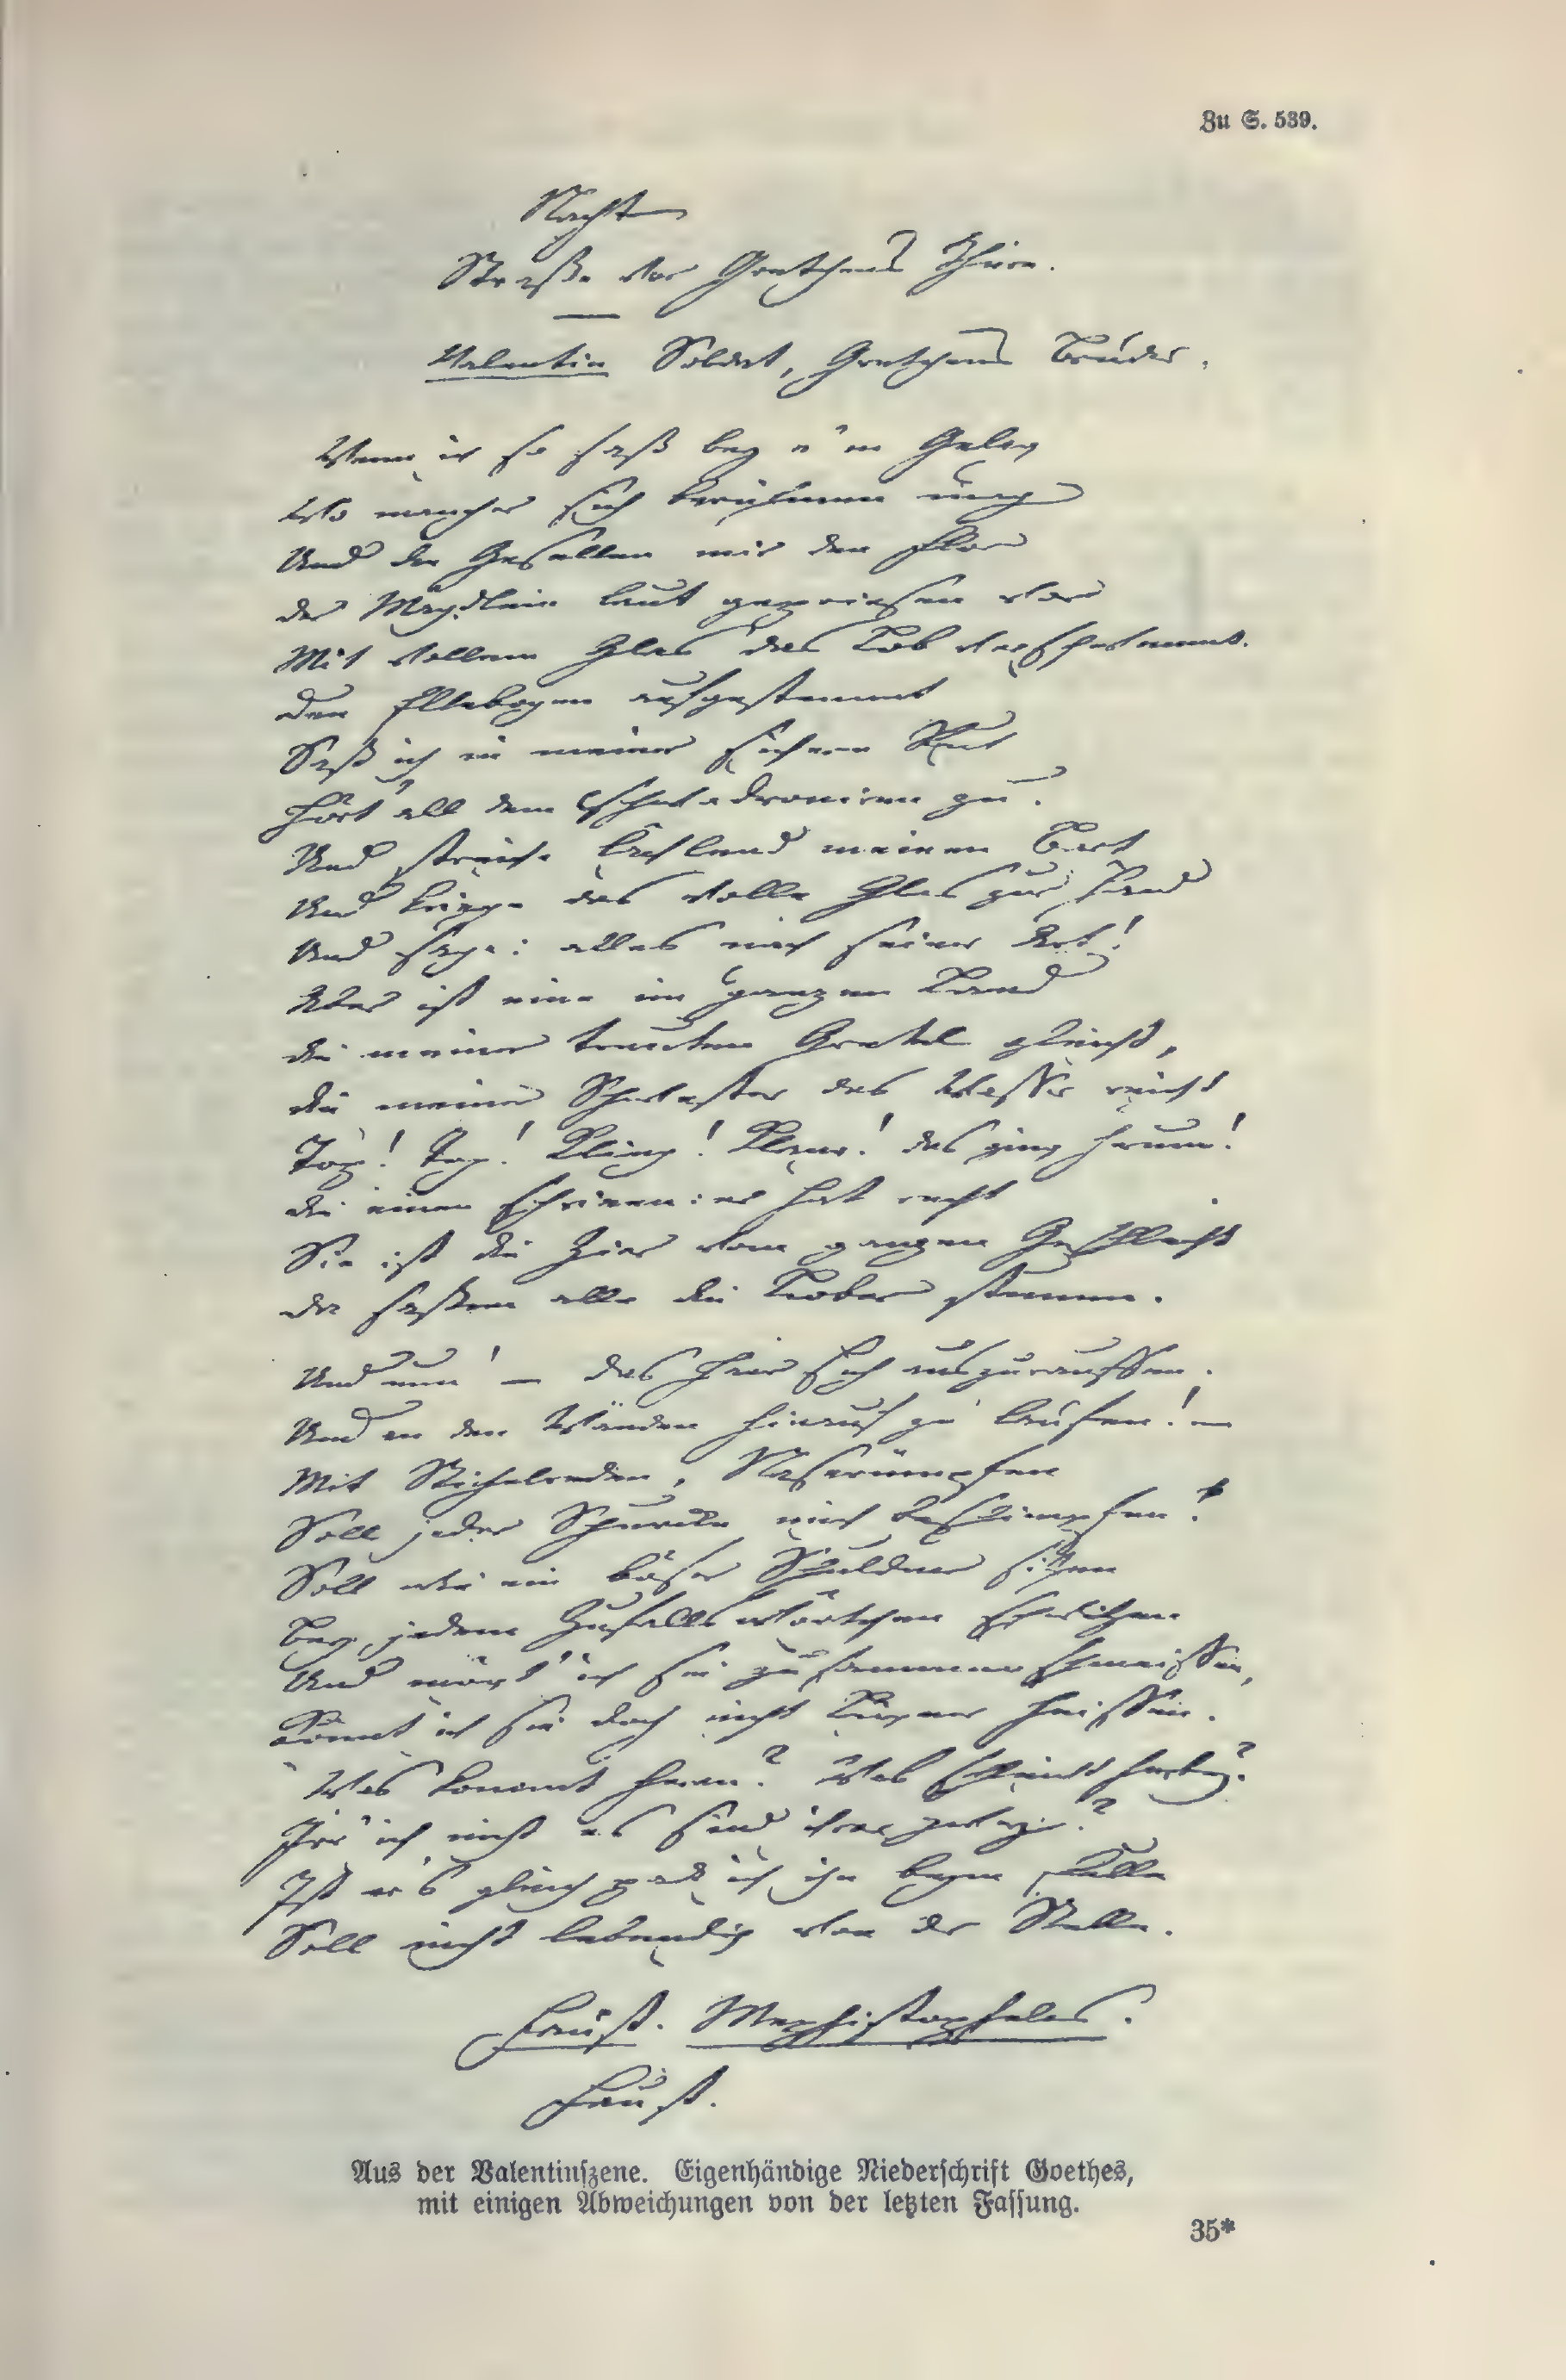 Zu S. 539.
Nacht
Straße vor Gretchens Thüre.
Valentin Soldat, Gretchens Bruder.
Wenn ich so saß bey e'm Gelag
Wo mancher sich berühmen mag
Und die Gesellen mir den Flor
der Mägdlein laut gepriesen vor
Mit vollem Glas das Lob verschwemmt.
den Ellebogen aufgestemmt
Saß ich in meiner sichern Ruh
Hört all dem Schwadroniren zu.
Und streiche lächlend meinen Bart
Und kriege das volle Glas zur Hand
Und sage: alles nach seiner Art!
Aber ist eine im ganzen Land
die meiner trauten Gretel gleicht,
die meiner Schwester das Wasser reicht
Top! Top! Kling! Klang! das ging herum!
die einen schrieen: er hat recht
Sie ist die Zier vom ganzen Geschlecht
da saßen alle die Lober stumm.
Und nun! – das Haar sich auszurauffen.
Und an den Wänden hinauf zu laufen! –
Mit Stichelreden, Naserümpfen
Soll jeder Schurcke mich beschimpfen!
Soll wie ein böser Schuldner sitzen
Bey jedem Zufallswörtchen schwitzen
Und mögt' ich sie zusammenschmeissen,
Könnt ich sie doch nicht Lügner heissen.
Was kommt heran? Was schleicht herbey?
Irr' ich nicht es sind ihrer zwey.?
Ist er's gleich pack ich ihn beym Felle
Soll nicht lebendig von der Stelle.
Faust. Mephistopheles.
Faust.
Aus der Valentinszene. Eigenhändige Niederschrift Goethes,
mit einigen Abweichungen von der letzten Fassung.
35*